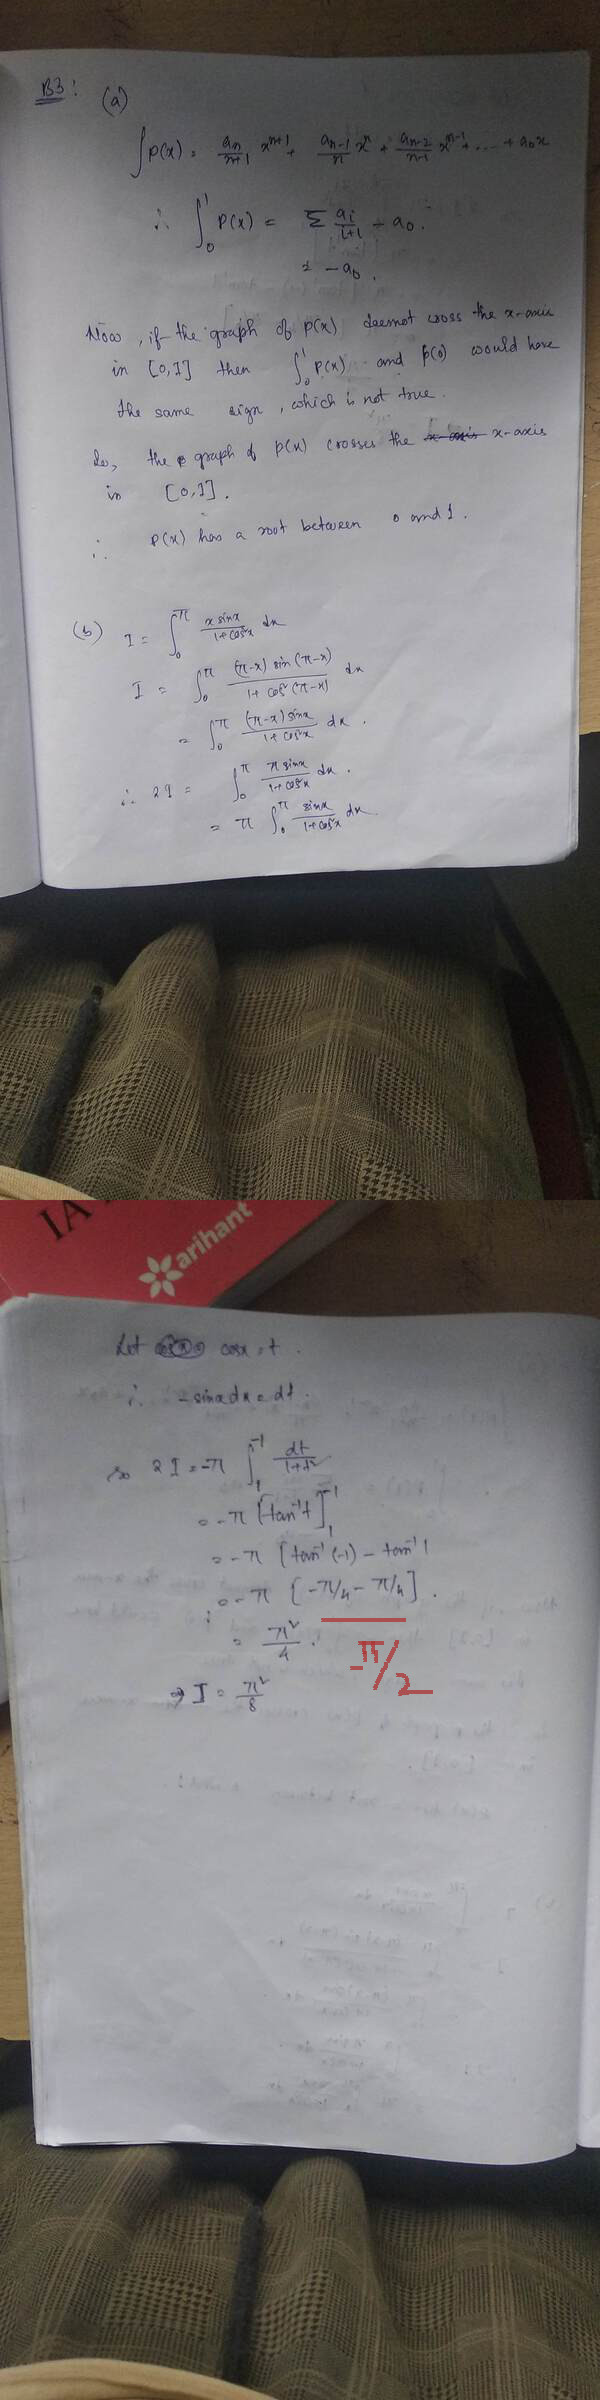 B3:
(a)
∫P(x) = aₙ/(n+1) xⁿ⁺¹ + aₙ₋₁/n xⁿ + aₙ₋₂/(n-1) xⁿ⁻¹ + ... + a₀x
∴ ∫₀¹ P(x) = Σ aᵢ/(i+1) - a₀.
= -a₀.
Now, if the graph of P(x) doesnot cross the x-axis
in [0,1] then ∫₀¹ P(x) and P(0) would have
the same sign, which is not true.
So, the graph of P(x) crosses the x-axis x-axis
in [0,1].
∴ P(x) has a root between 0 and 1.
(b) I = ∫₀^π x sinx/(1+cos²x) dx
I = ∫₀^π (π-x) sin(π-x)/(1+cos²(π-x)) dx
= ∫₀^π (π-x) sinx/(1+cos²x) dx.
∴ 2I = ∫₀^π π sinx/(1+cos²x) dx.
= π ∫₀^π sinx/(1+cos²x) dx.
IA
arihant
Let cosx = t.
∴ -sinxdx = dt.
So 2I = -π ∫₁⁻¹ dt/(1+t²)
= -π [tan⁻¹t]₁⁻¹
= -π [tan⁻¹(-1) - tan⁻¹1
= -π [-π/4 - π/4].
= π²/4.
-π/2
⇒ I = π²/8